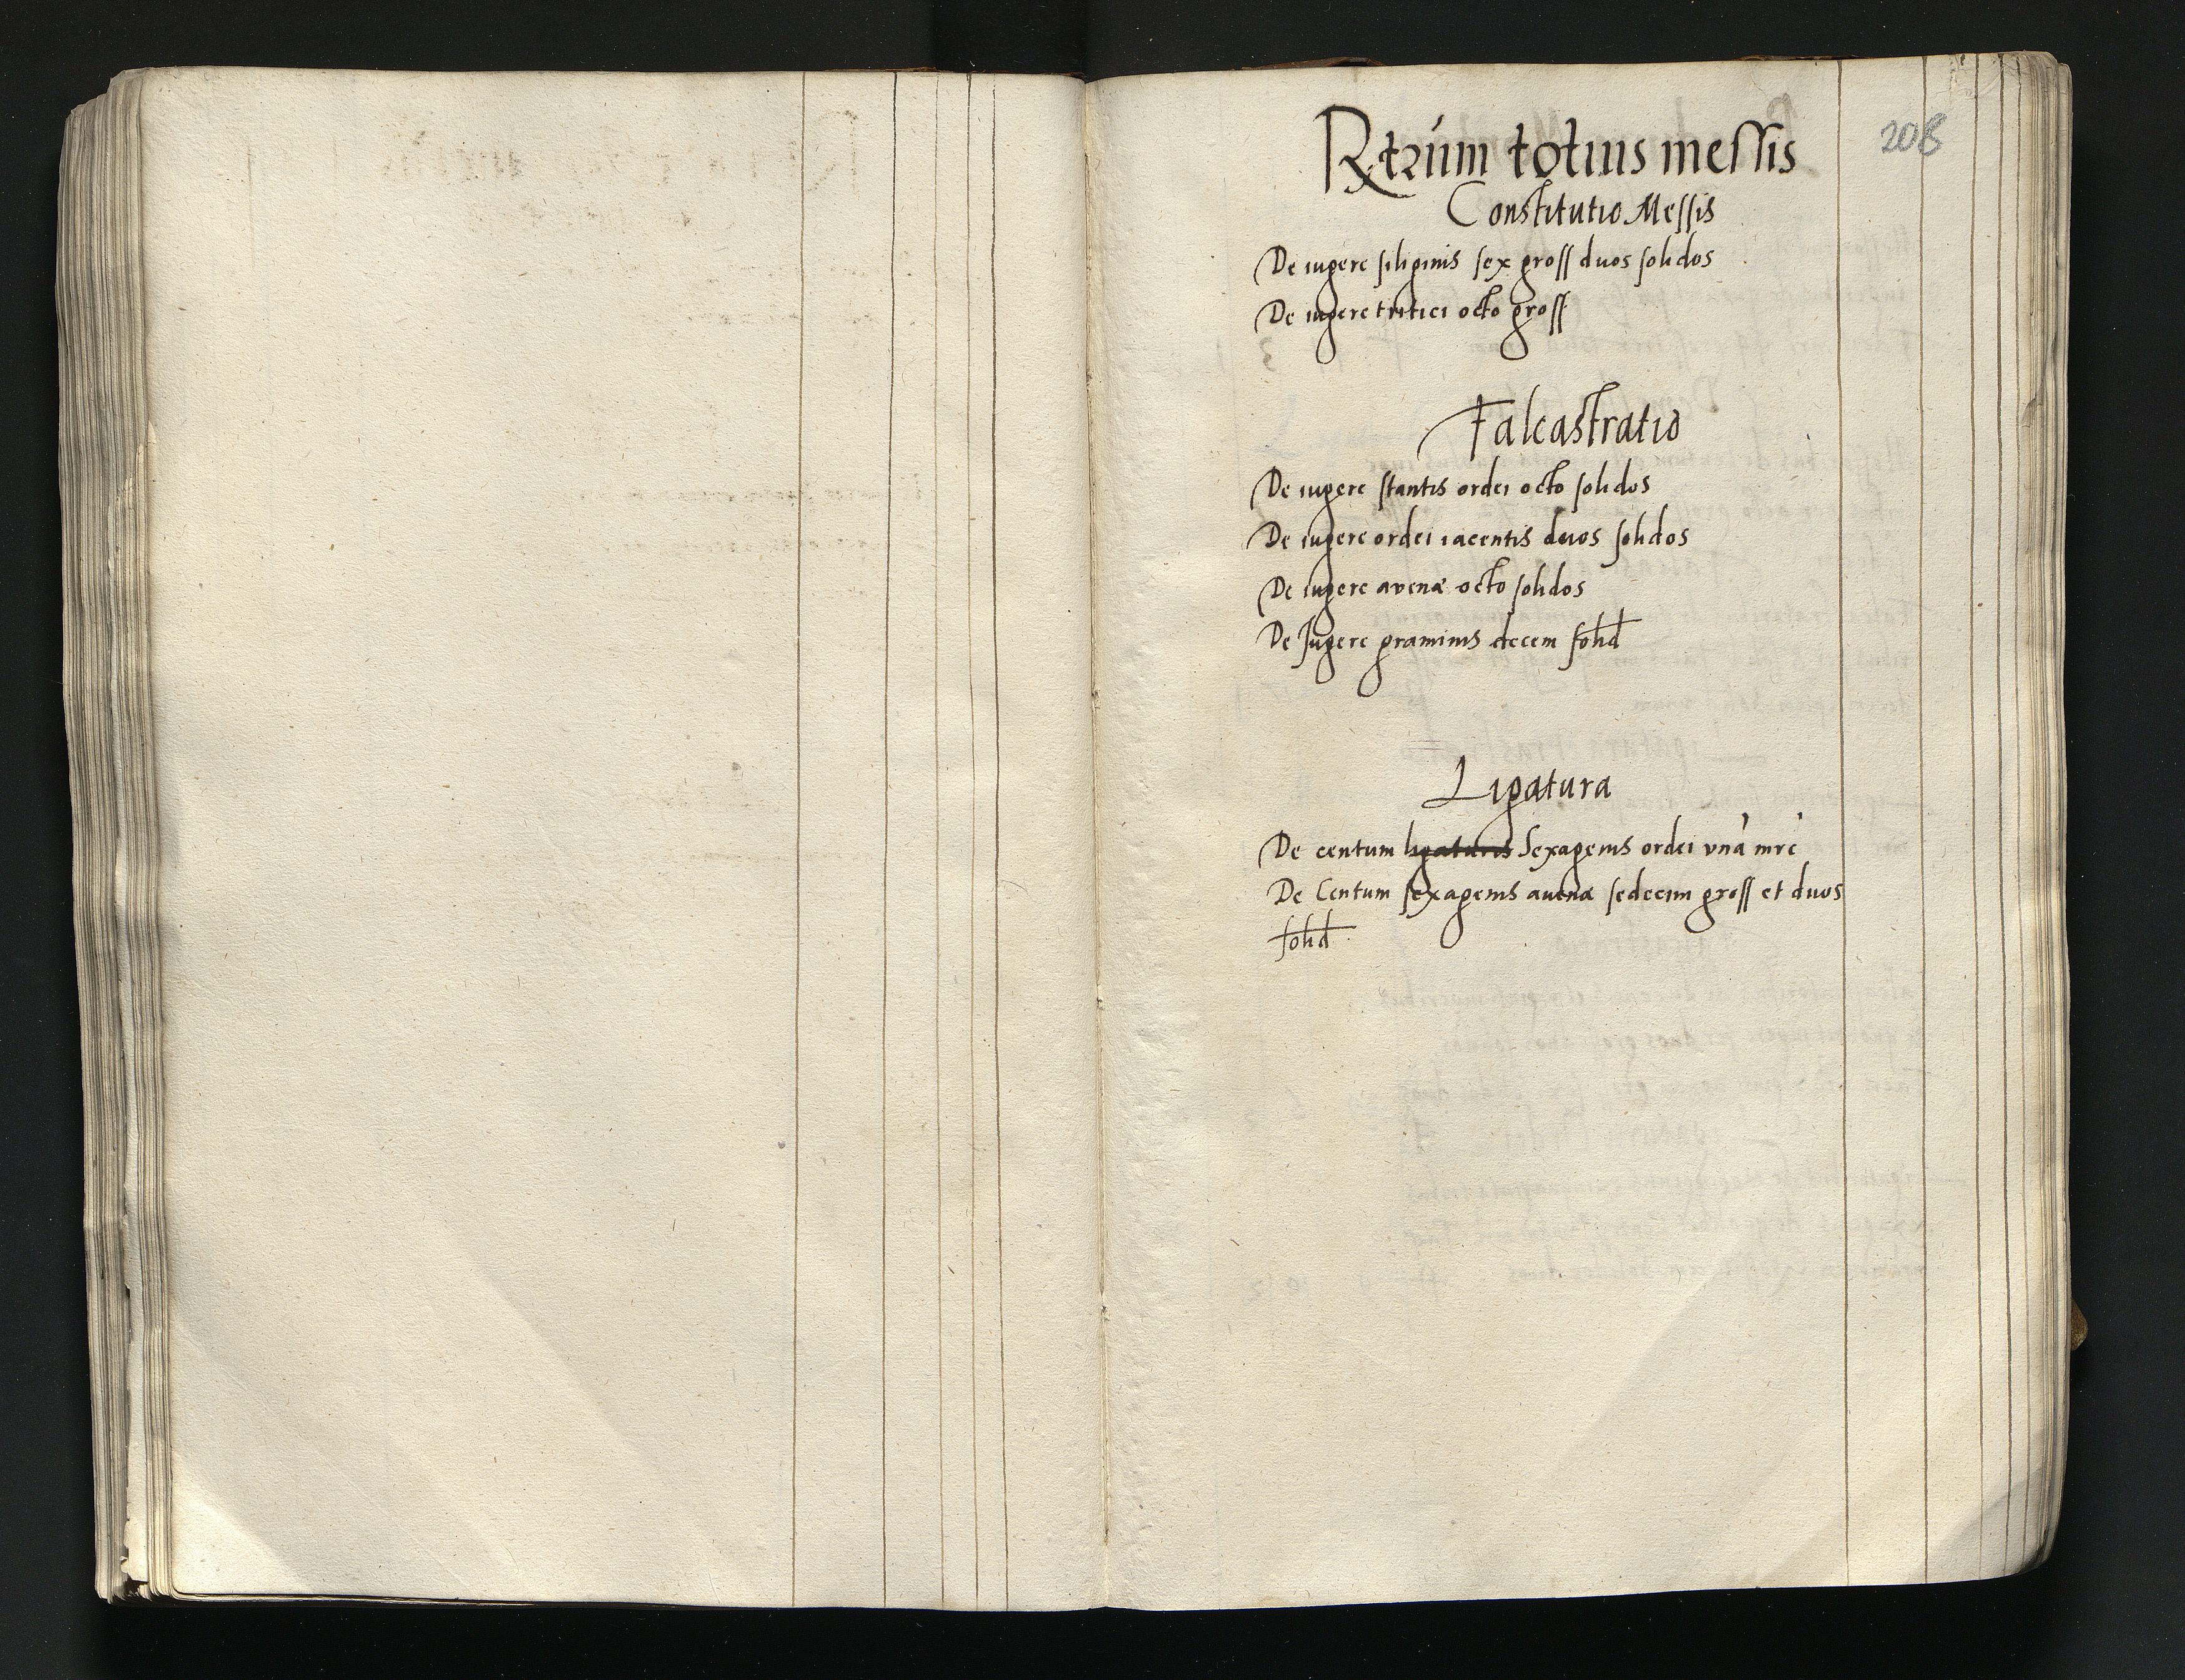 Rtrum totius messis
208
Constitutio Messis
De iugere siliginis sex gross duos solidos
De iugere tritici octo gross
Falcastratio
De iugere stantis ordei octo solidos
De iugere ordei iacentis duos solidos
De iugere avenæ octo solidos
De Jugere graminis decem solid
Ligatura
De centum ligaturis Sexagenis ordei vnā mrć
De Centum sexagenis auenæ sedecim gross et duos
solid